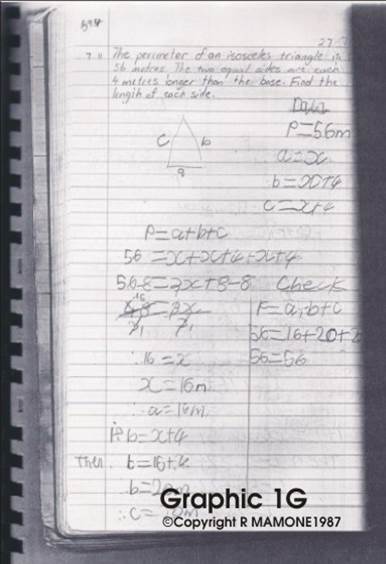 27
7 11 The perimeter of an isosceles triangle is
56 metres. The two equal sides are each
4 metres longer than the base. Find the
length of each side.
Data
P=56m
c b
a=x
a
b=x+4
c=x+4
P=a+b+c
56=x+x+4+x+4
56-8=3x+8-8 Check
48=3x P=a+b+c
56=16+20+2
∴16=x 56=56
x=16m
∴a=16m
If b=x+4
Then b=16+4
b=20m
∴c=20m
Graphic 1G
©Copyright R MAMONE1987